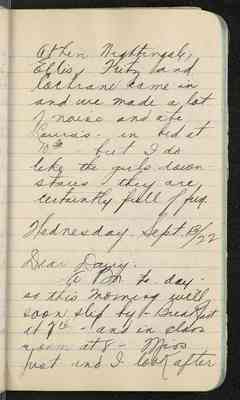 then Nightingale,
Ellis, Fritz and
Cochrane came in
and we made a lot
of noise and ate
in bed at
10 - but I do
like the girls down
stairs, they are
certainly full of fun.
Wednesday. Sept. 13/22
Dear Dairy.
A P.M. to-day -
so this morning will
soon slip by! - Breakfast
at 7 - and in class
room at 8 - Miss
Just and I look after